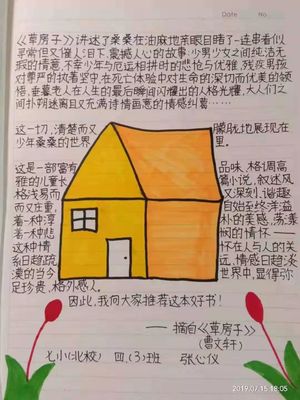 Date
No.
《草房子》讲述了桑桑在油麻地亲眼目睹了一连串看似
平常但又催人泪下、震撼人心的故事:少男少女之间纯洁无
瑕的情意,不幸少年与厄运相拼时的悲怆与优雅,残疾男孩
对尊严的执着坚守,在死亡体验中对生命的深切而优美的领
悟,垂暮老人在人生的最后瞬间闪耀出的人格光耀,大人们之
间扑朔迷离且又充满诗情画意的情感纠葛……
这一切,清楚而又朦胧地展现在
少年桑桑的世界里。
这是一部富有品味、格调高
雅的儿童长篇小说,叙述风
格浅易而又深刻、谐趣
而又庄重,自始至终洋溢
着一种淳朴的美感,荡漾
着一种悲悯的情怀——
这种情怀在人与人的关
系日趋疏远、情感日趋淡
漠的当今世界中,显得弥
足珍贵、格外感人。
因此,我向大家推荐这本好书!
——摘自《草房子》
(曹文轩)
七小(北校) 四.(3)班 张心仪
2019.07.15 18:05